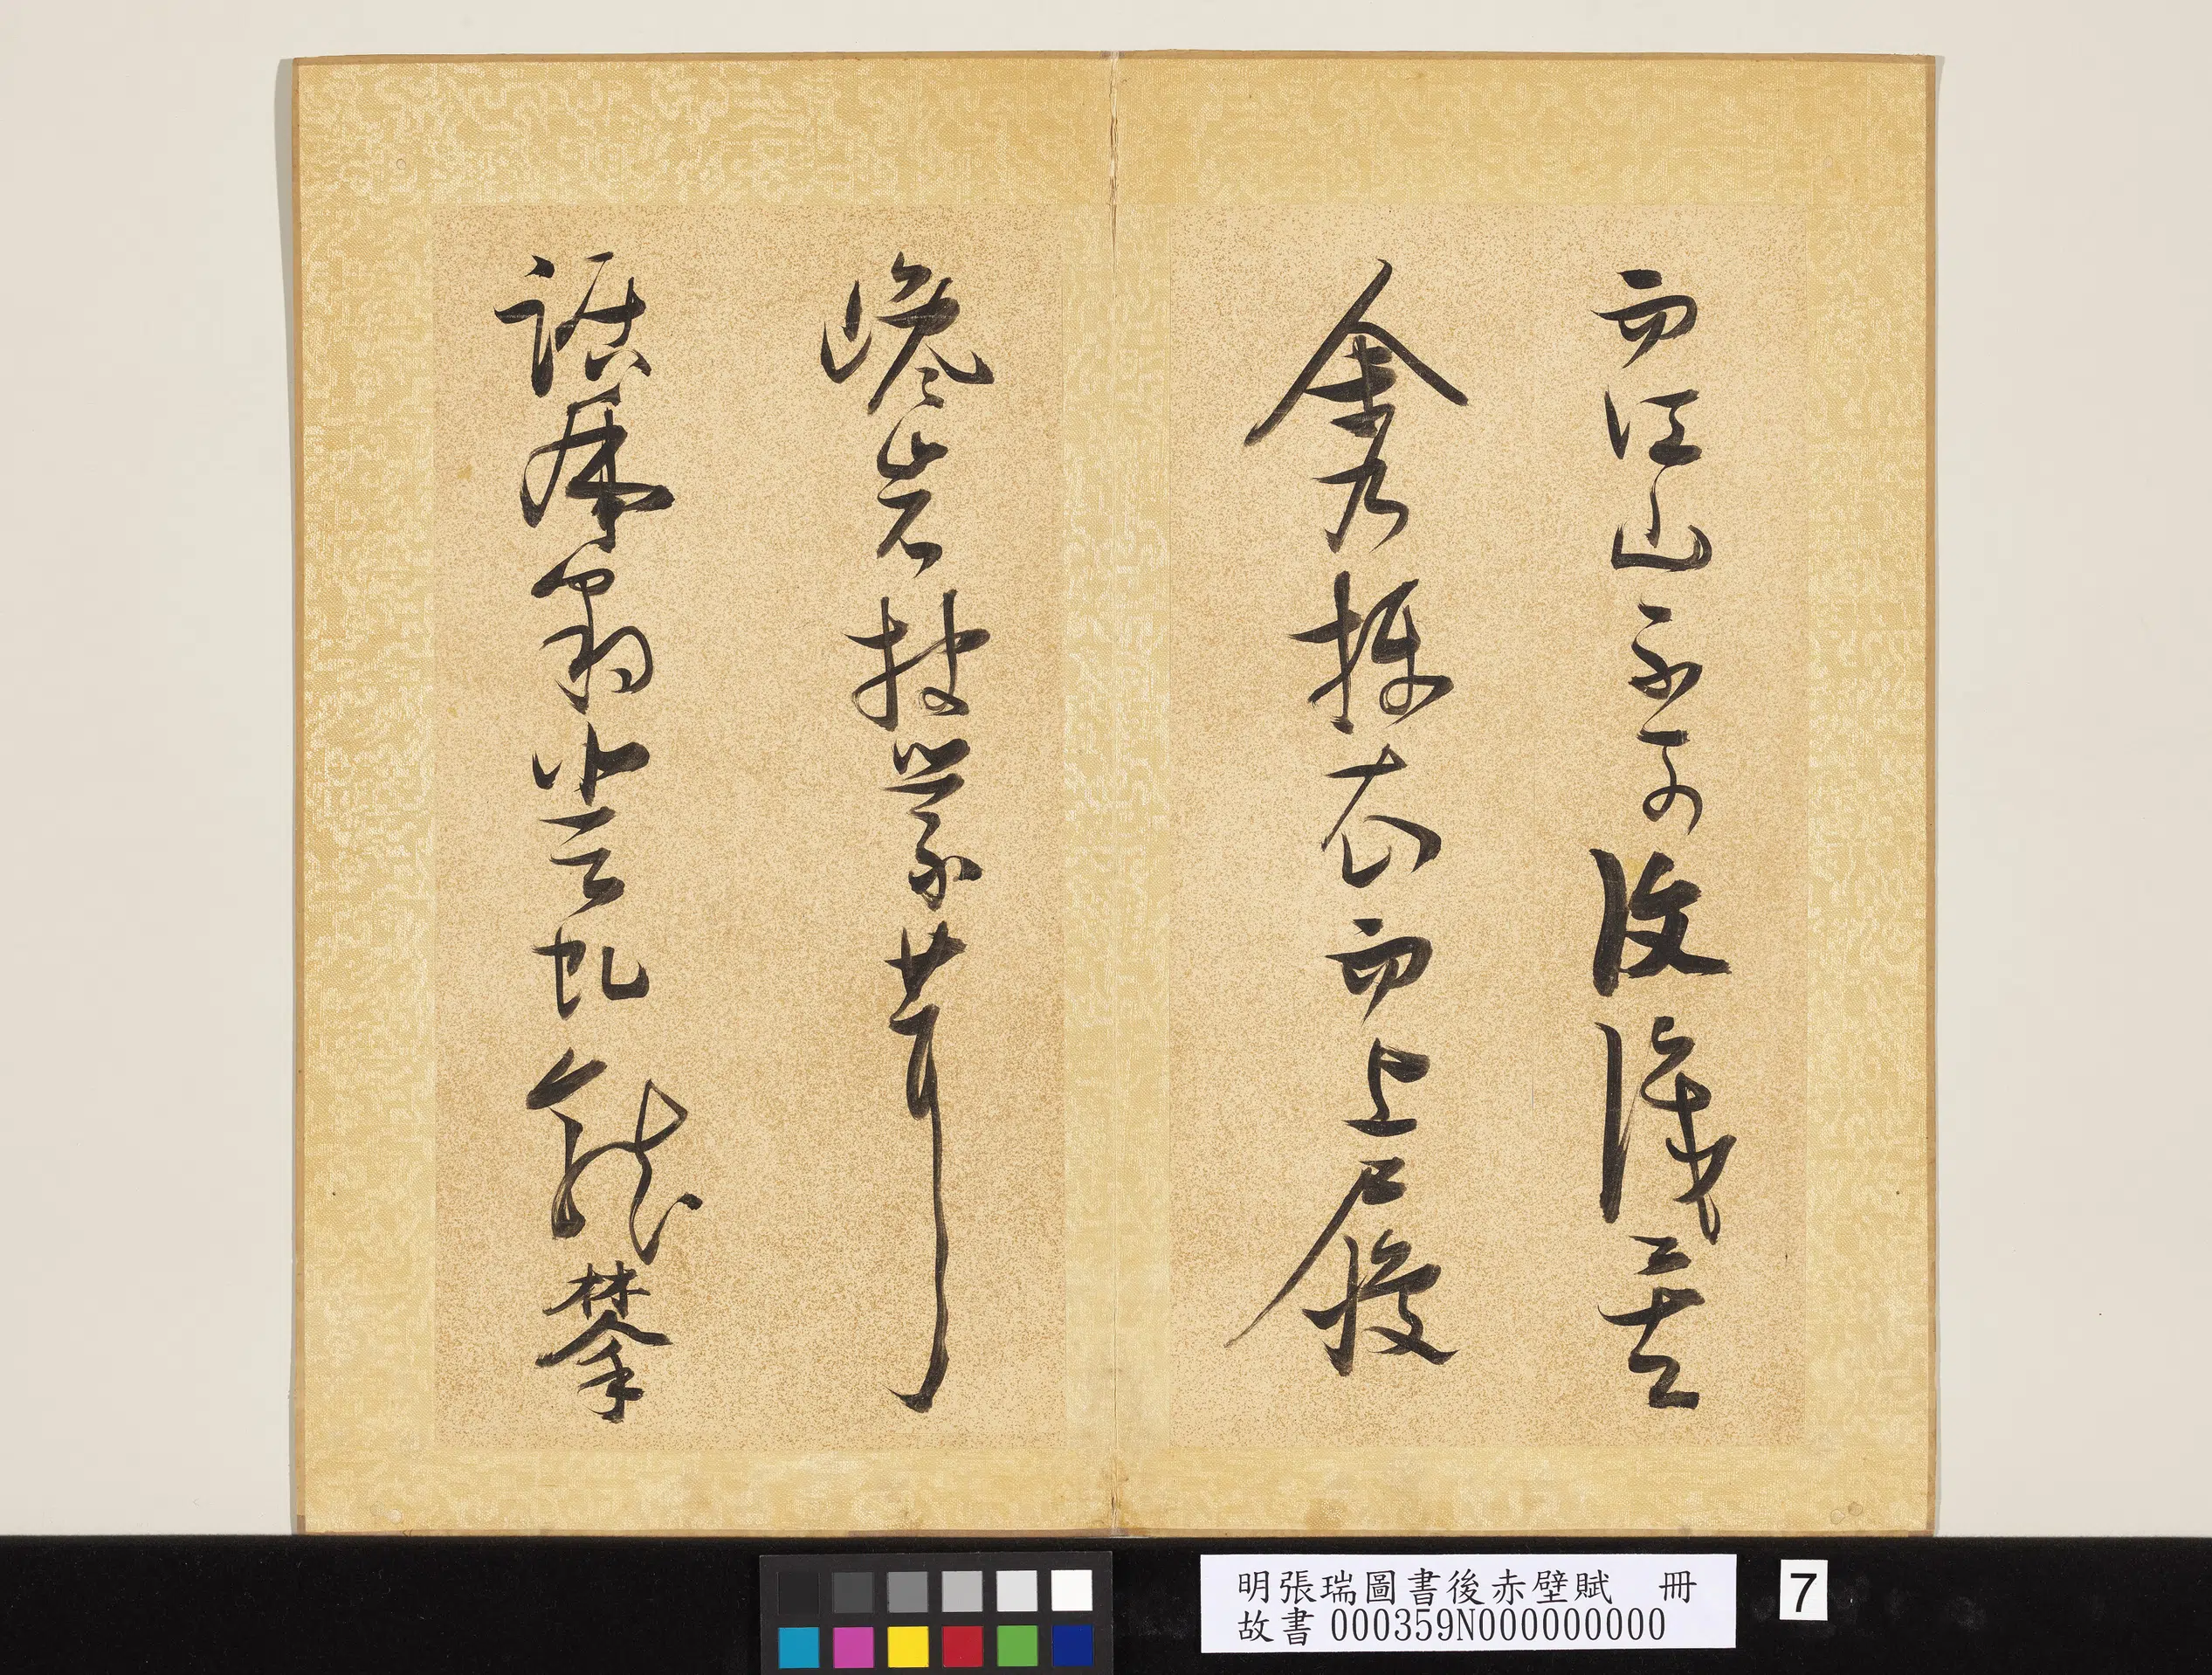 而江山不可復識矣
余乃攝衣而上履
巉岩披蒙茸
踞虎豹登虬龍攀
明張瑞圖書後赤壁賦 冊
故書000359N000000000
7